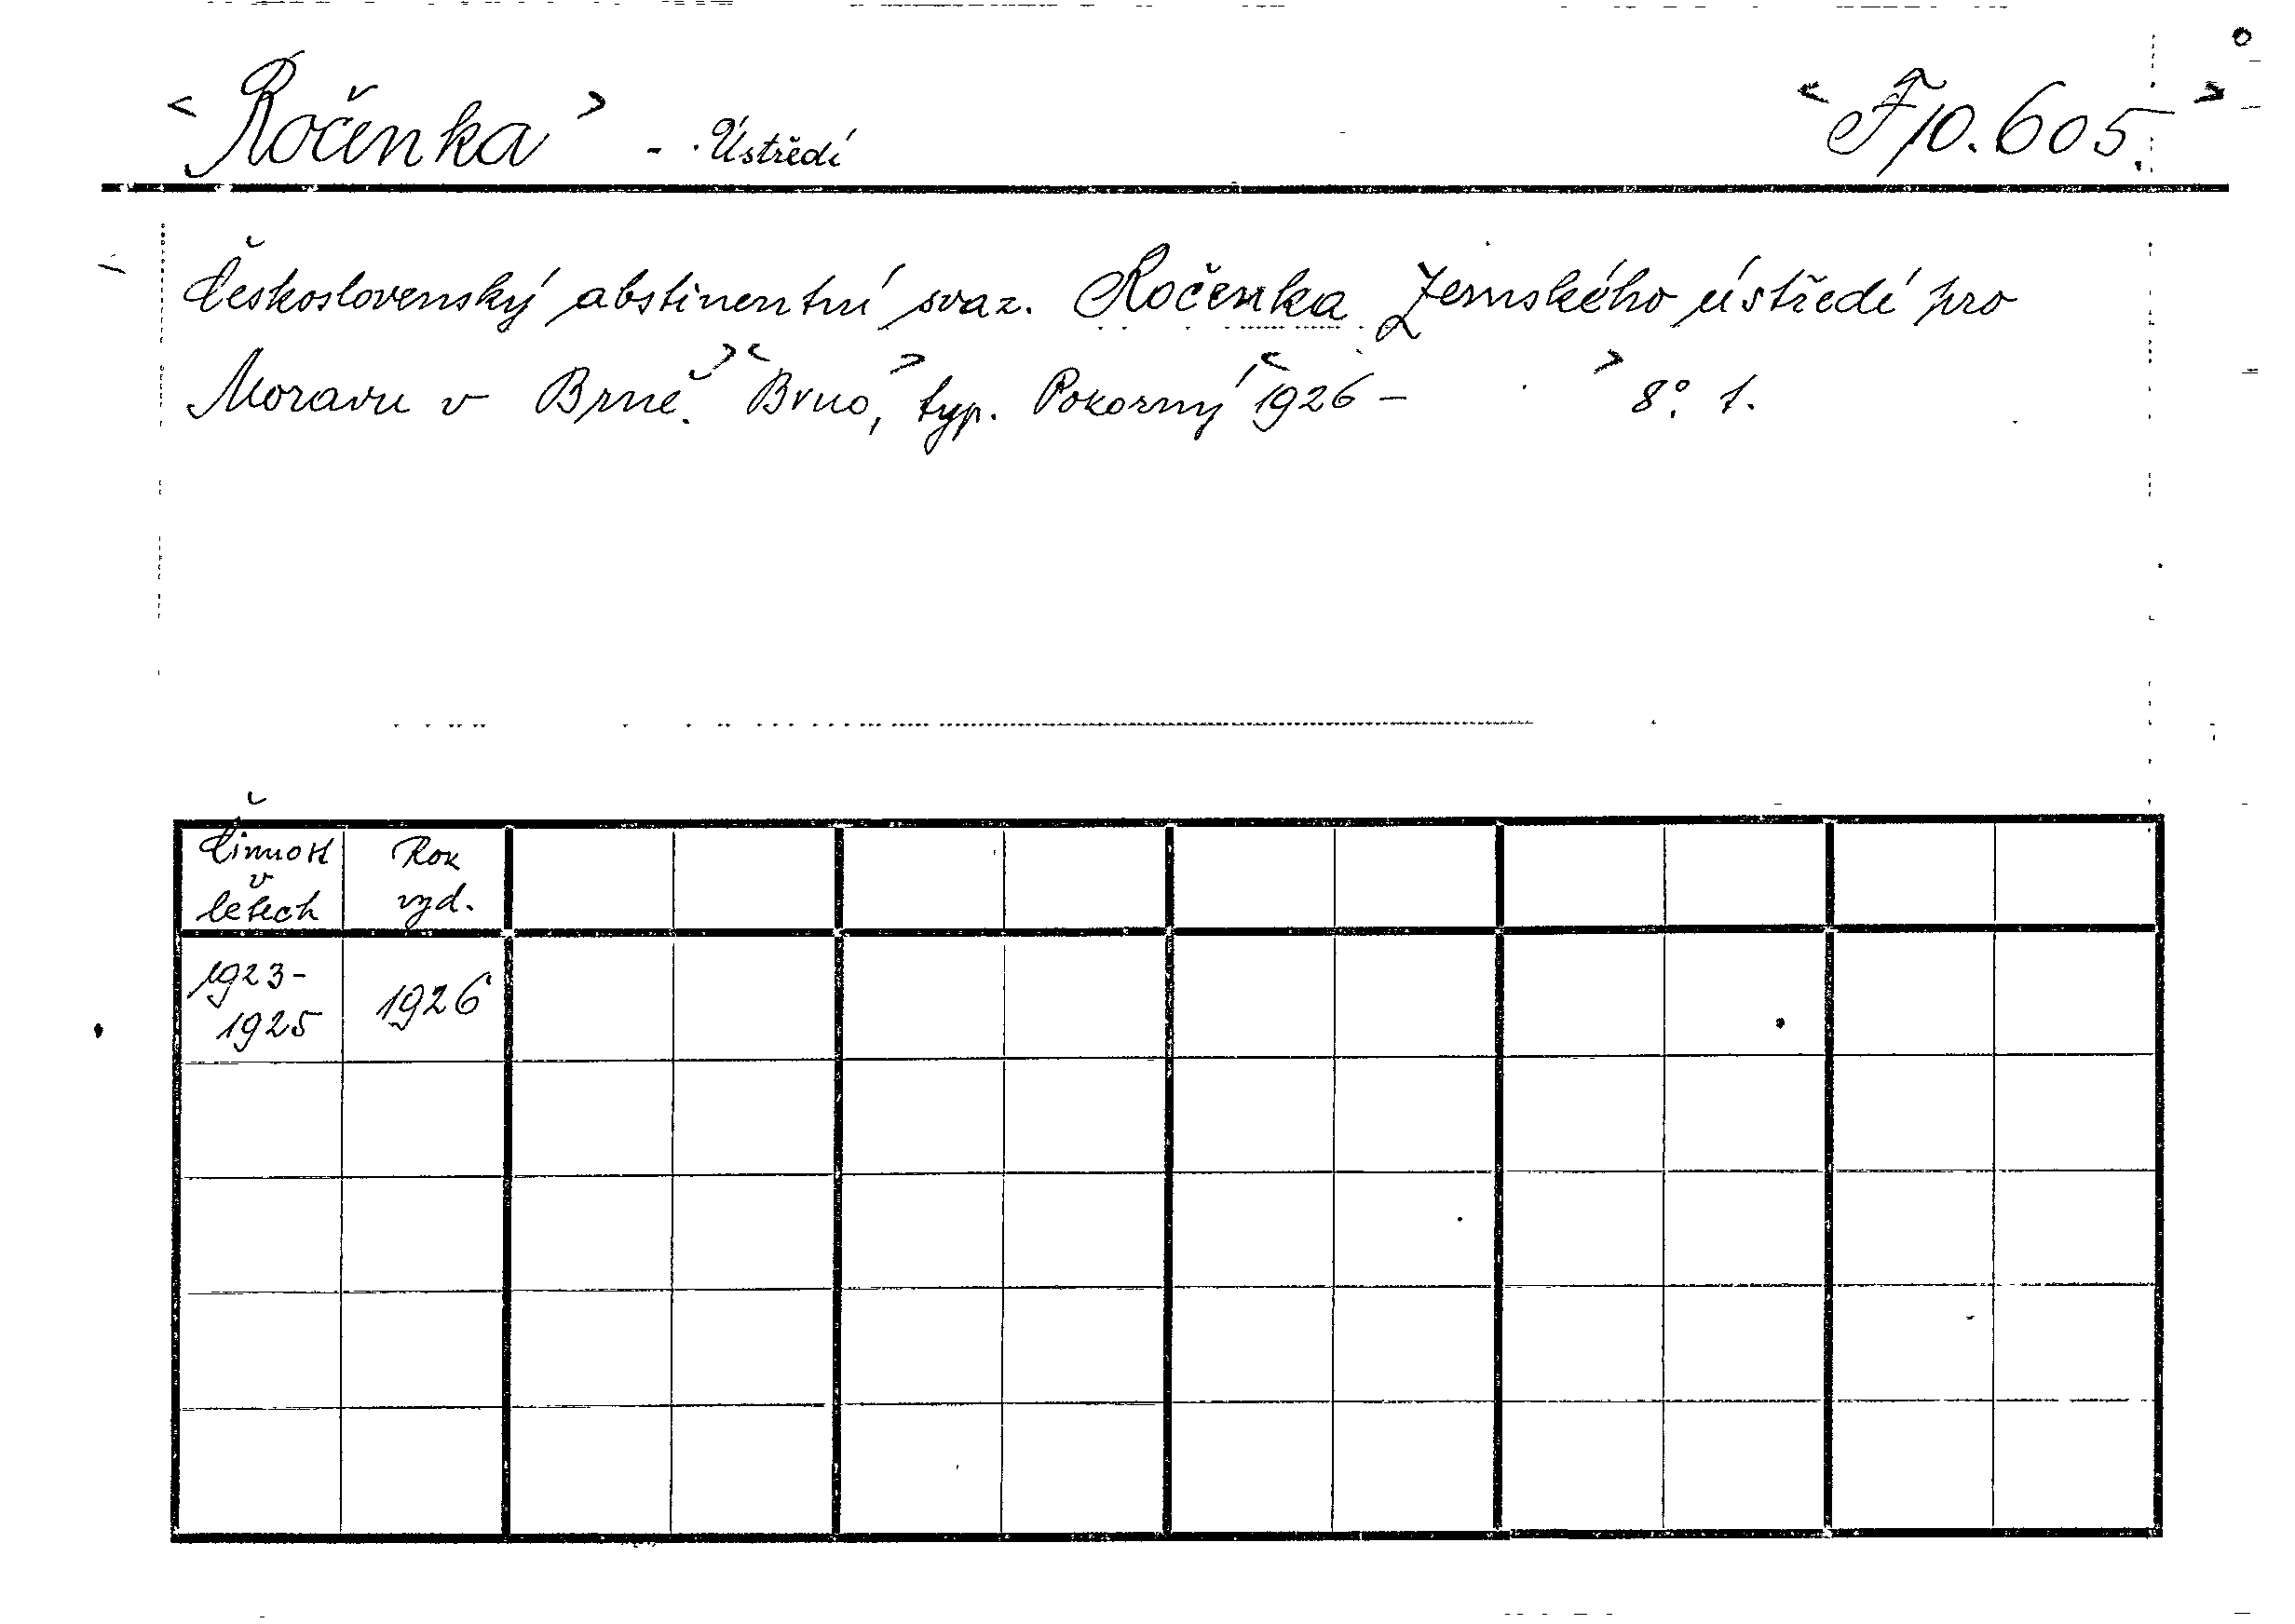 < Ročenka > - Ústředí < F 10.605. >
Československý abstinentní svaz. Ročenka Zemského ústředí pro
Moravu v Brně. > < Brno, > typ. Pokorný < 1926 - > 8°. 1.
Činnost v letech Rok vyd.
1923-1925 1926